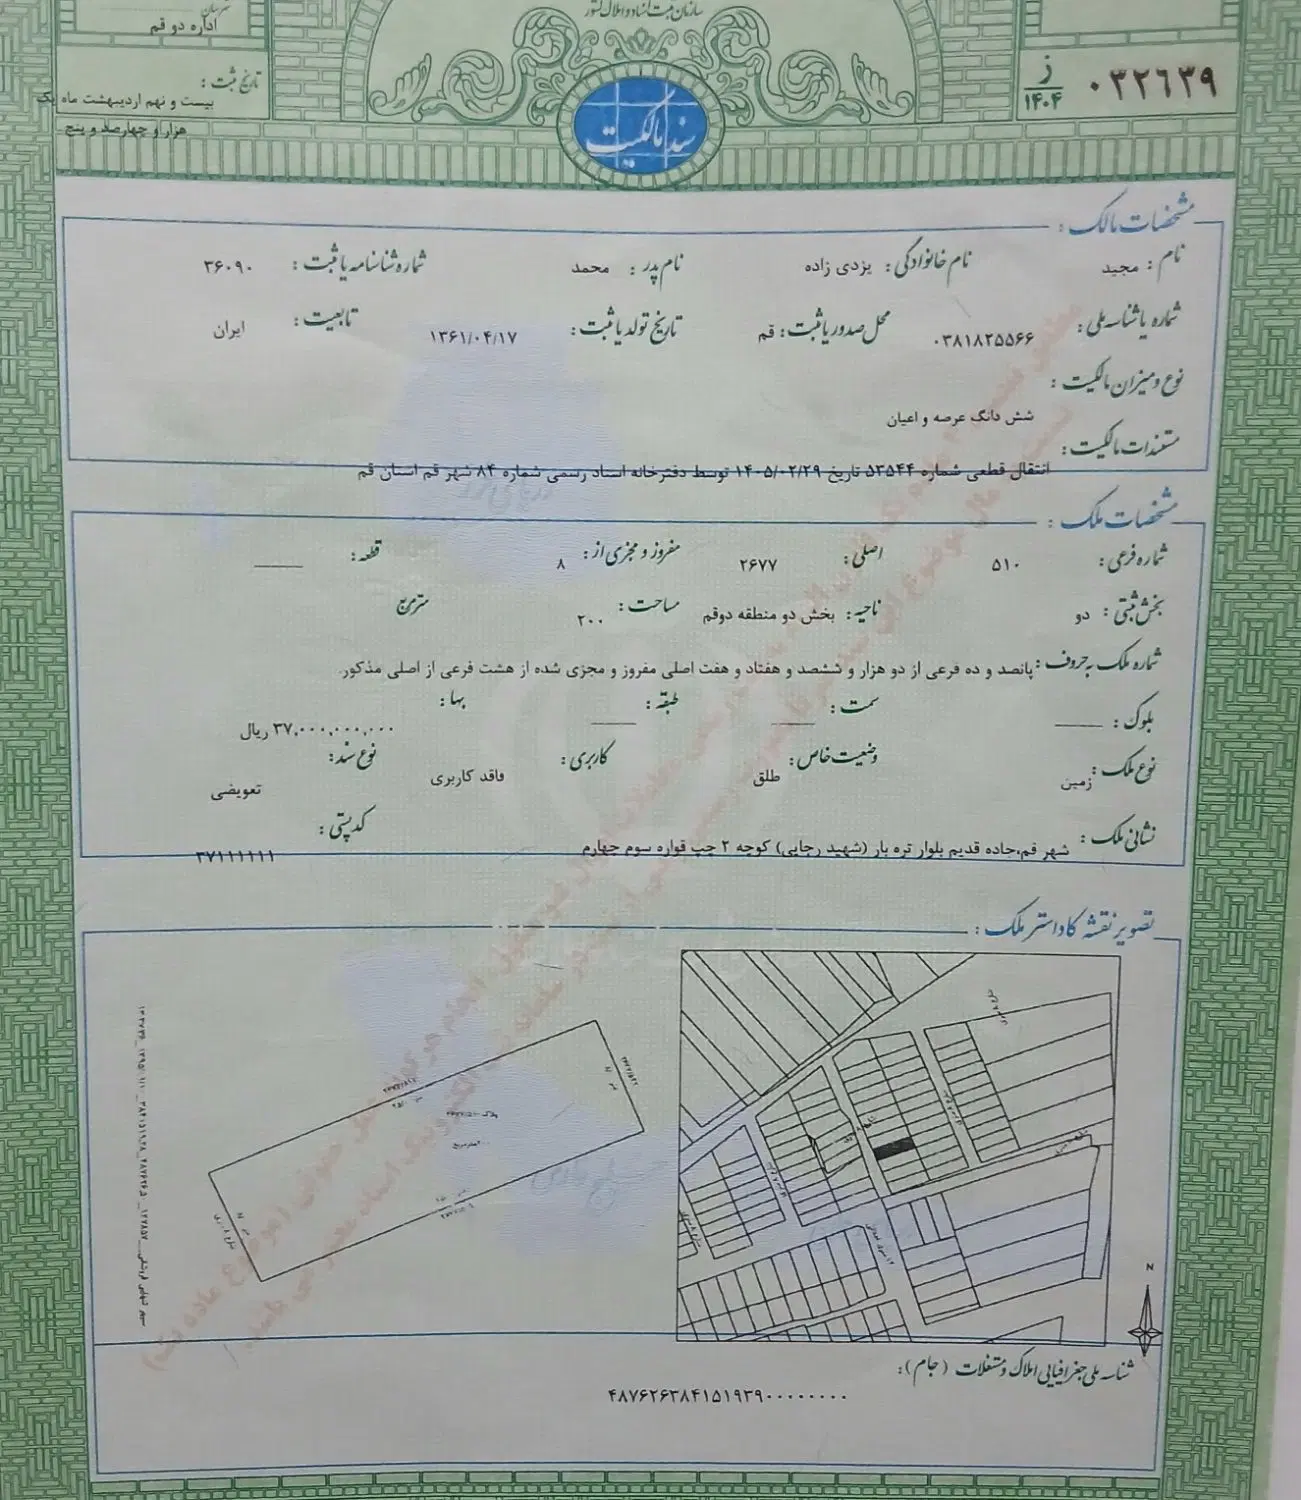 سازمان ثبت اسناد و املاک کشور
اداره دو قم
تاریخ ثبت :
بیست و نهم اردیبهشت ماه یک
هزار و چهارصد و پنج
ز
۱۴۰۴
۰۳۲٦۳۹
سند مالکیت
مشخصات مالک :
نام : مجید نام خانوادگی : یزدی زاده نام پدر : محمد شماره شناسنامه یا ثبت : ۳۶۰۹۰
شماره یا شناسه ملی : ۰۳۸۱۸۲۵۵۶۶ محل صدور یا ثبت : قم تاریخ تولد یا ثبت : ۱۳۶۱/۰۴/۱۷ تابعیت : ایران
نوع و میزان مالکیت :
شش دانگ عرصه و اعیان
مستندات مالکیت :
انتقال قطعی شماره ۵۳۵۴۴ تاریخ ۱۴۰۵/۰۲/۲۹ توسط دفترخانه اسناد رسمی شماره ۸۴ شهر قم استان قم
مشخصات ملک :
شماره فرعی : ۵۱۰ اصلی : ۲۶۷۷ مفروز و مجزی از : ۸ قطعه :
بخش ثبتی : دو ناحیه : بخش دو منطقه دوقم مساحت : ۲۰۰ مترمربع
شماره ملک به حروف : پانصد و ده فرعی از دو هزار و ششصد و هفتاد و هفت اصلی مفروز و مجزی شده از هشت فرعی از اصلی مذکور.
بلوک : سمت : طبقه : بها : ۳۷,۰۰۰,۰۰۰,۰۰۰ ریال
نوع ملک : زمین وضعیت خاص : طلق کاربری : فاقد کاربری نوع سند : تعویضی
نشانی ملک : شهر قم،جاده قدیم بلوار تره بار (شهید رجایی) کوچه ۲ چپ قواره سوم چهارم کدپستی : ۳۷۱۱۱۱۱۱
تصویر نقشه کاداستر ملک :
N
شناسه ملی جغرافیایی املاک و مستغلات (جام) :
۴۸۷۶۲۶۳۸۴۱۵۱۹۳۹۰۰۰۰۰۰۰۰